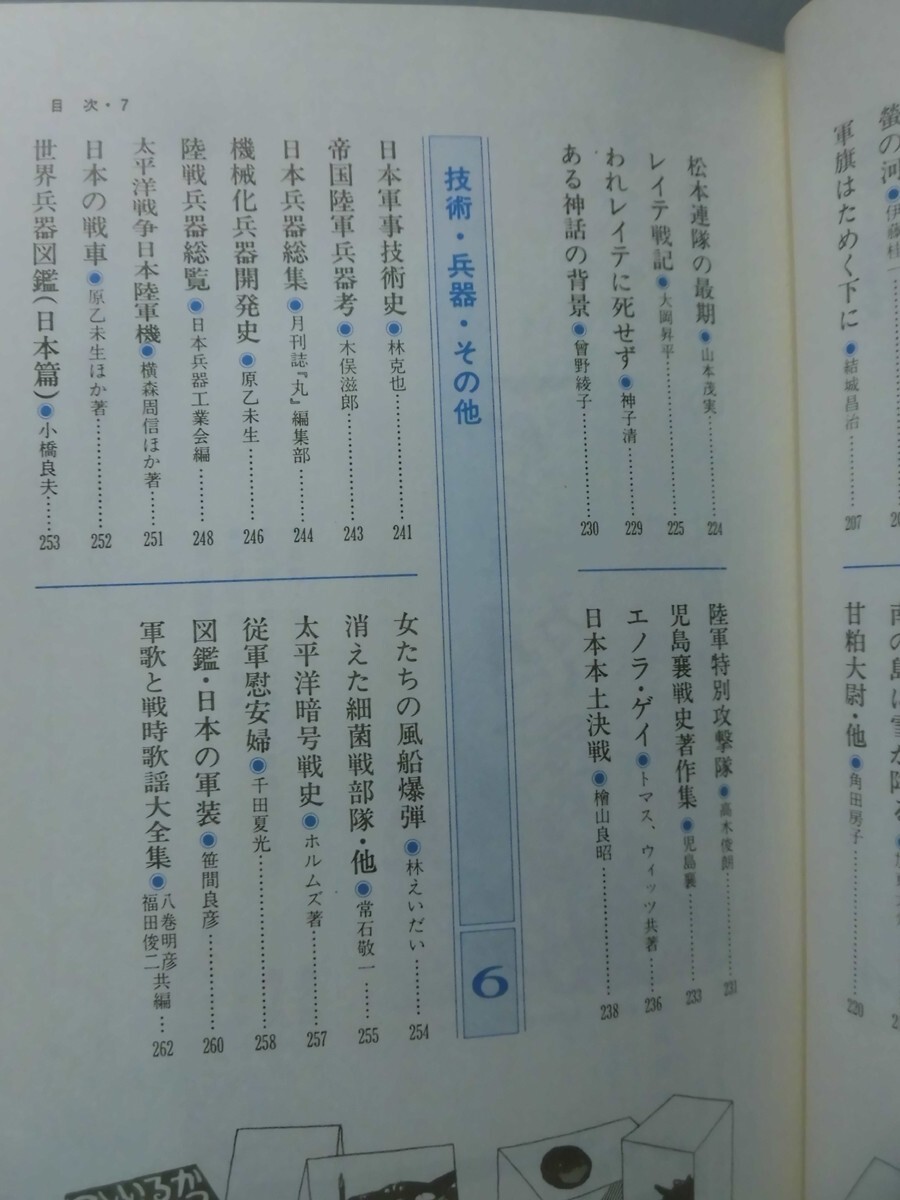 目次・7
螢の河●伊藤桂一
軍旗はためく下に●結城昌治………207
甘粕大尉・他●角田房子………220
松本連隊の最期●山本茂実………224
レイテ戦記●大岡昇平………225
われレイテに死せず●神子清………229
ある神話の背景●曾野綾子………230
陸軍特別攻撃隊●高木俊朗………231
児島襄戦史著作集●児島襄………233
エノラ・ゲイ●トマス、ウィッツ共著………236
日本本土決戦●檜山良昭………238
技術・兵器・その他
6
日本軍事技術史●林克也………241
帝国陸軍兵器考●木俣滋郎………243
日本兵器総集●月刊誌『丸』編集部………244
機械化兵器開発史●原乙未生………246
陸戦兵器総覧●日本兵器工業会編………248
太平洋戦争日本陸軍機●横森周信ほか著………251
日本の戦車●原乙未生ほか著………252
世界兵器図鑑(日本篇)●小橋良夫………253
女たちの風船爆弾●林えいだい………254
消えた細菌戦部隊・他●常石敬一………255
太平洋暗号戦史●ホルムズ著………257
従軍慰安婦●千田夏光………258
図鑑・日本の軍装●笹間良彦………260
軍歌と戦時歌謡大全集●八巻明彦
福田俊二共編…262